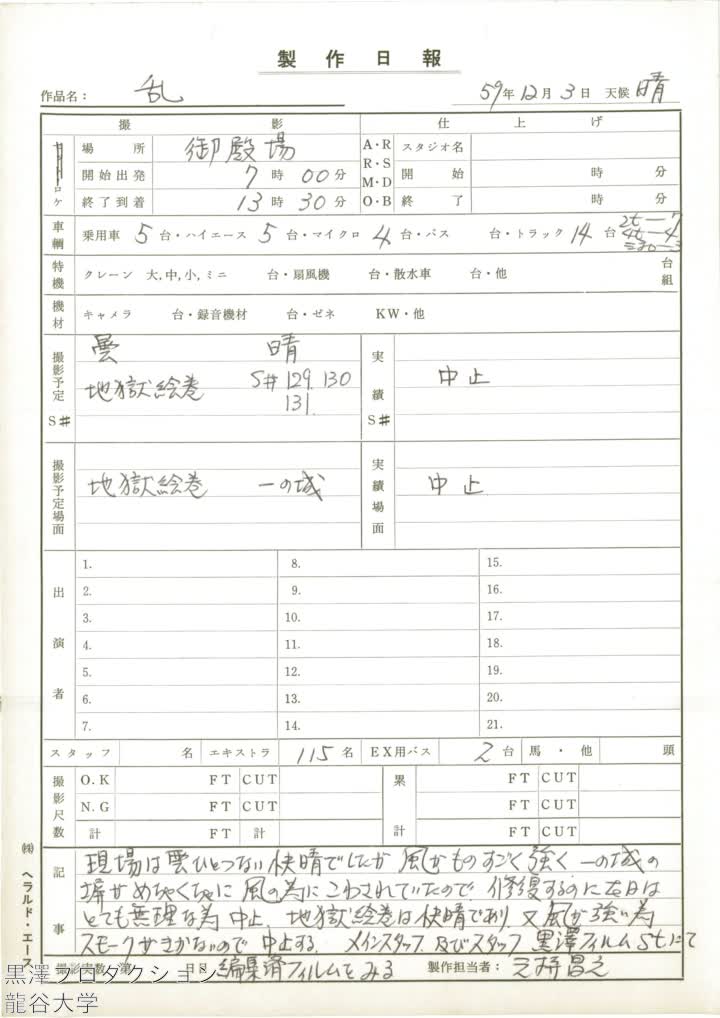 製作日報
作品名: 乱 59年12月3日 天候 晴
撮影 仕上げ
セット・ロケ 場所 御殿場 A・R スタジオ名
開始出発 7時00分 R・S M・D 開始 時 分
終了到着 13時30分 O・B 終了 時 分
車輛 乗用車 5台・ハイエース 5台・マイクロ 4台・バス 台・トラック 14台 2t―7
4t―4
特機 クレーン 大,中,小,ミニ 台・扇風機 台・散水車 台・他 台組
機材 キャメラ 台・録音機材 台・ゼネ KW・他
撮影予定 S# 曇 晴 実績 S# 中止
地獄絵巻 S#129. 130
131.
撮影予定場面 地獄絵巻 一の城 実績場面 中止
出演者 1. 8. 15.
2. 9. 16.
3. 10. 17.
4. 11. 18.
5. 12. 19.
6. 13. 20.
7. 14. 21.
スタッフ 名 エキストラ 115名 EX用バス 2台 馬・他 頭
撮影尺数 O.K FT CUT 累計 FT CUT
N.G FT CUT FT CUT
計 FT 計 FT CUT
記事 現場は雲ひとつない快晴でしたが 風がものすごく強く 一の城の
塀がめちゃくちゃに風の為にこわされていたので 修復するのに本日は
とても無理な為 中止. 地獄絵巻は快晴であり 又 風が強い為
スモークがきかないので 中止する. メインスタッフ 及びスタッフ 黒澤フィルムStにて
撮影実数 第 日目 編集済フィルムをみる 製作担当者:
㈱ ヘラルド・エース
黒澤プロダクション
龍谷大学